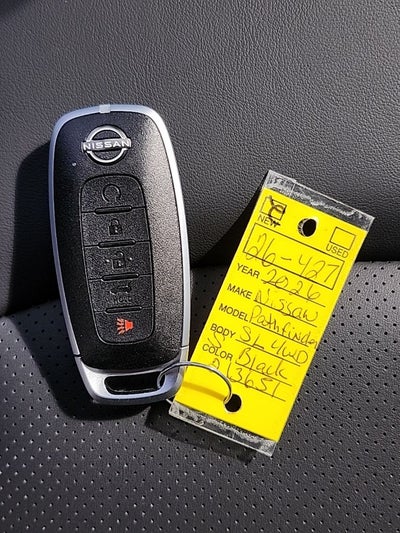 NISSAN
NEW
USED
26-427
YEAR 2026
MAKE Nissan
MODEL Pathfinder
BODY SL 4WD
COLOR Black